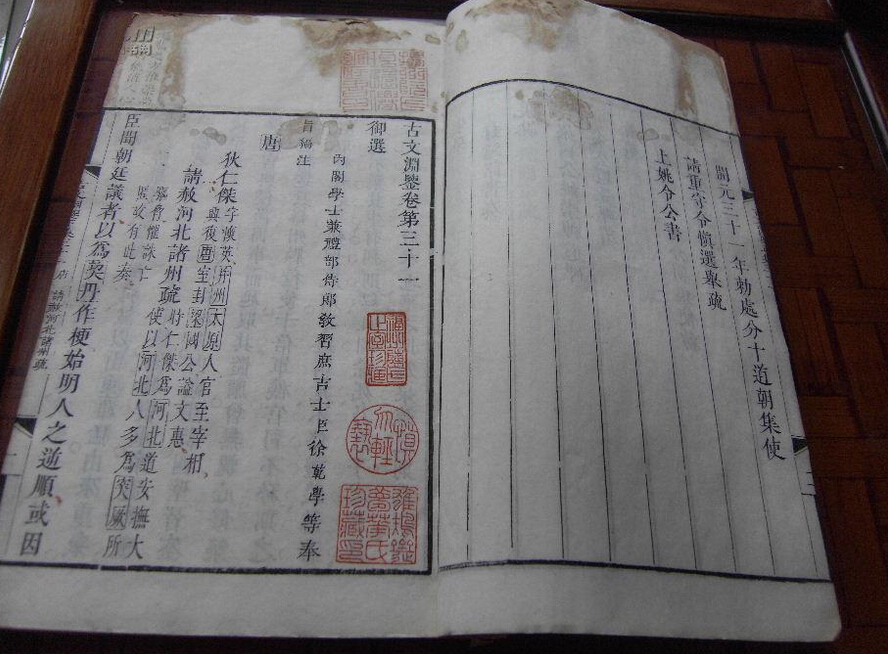 開元二十一年勅處分十道朝集使
請重守令愼選舉疏
上姚令公書
古文淵鑒卷第三十一
御選
內閣學士兼禮部侍郎教習庶吉士臣徐乾學等奉
旨編注
唐
狄仁傑字懷英并州太原人官至宰相
興復唐室封梁國公謚文惠
請赦河北諸州疏時仁傑為河北道安撫大
使以河北人多為突厥所
驅脅懼誅亡
匿故有此奏
臣聞朝廷議者以為契丹作梗始明人之逆順或因
請赦河北諸州疏
珍藏印